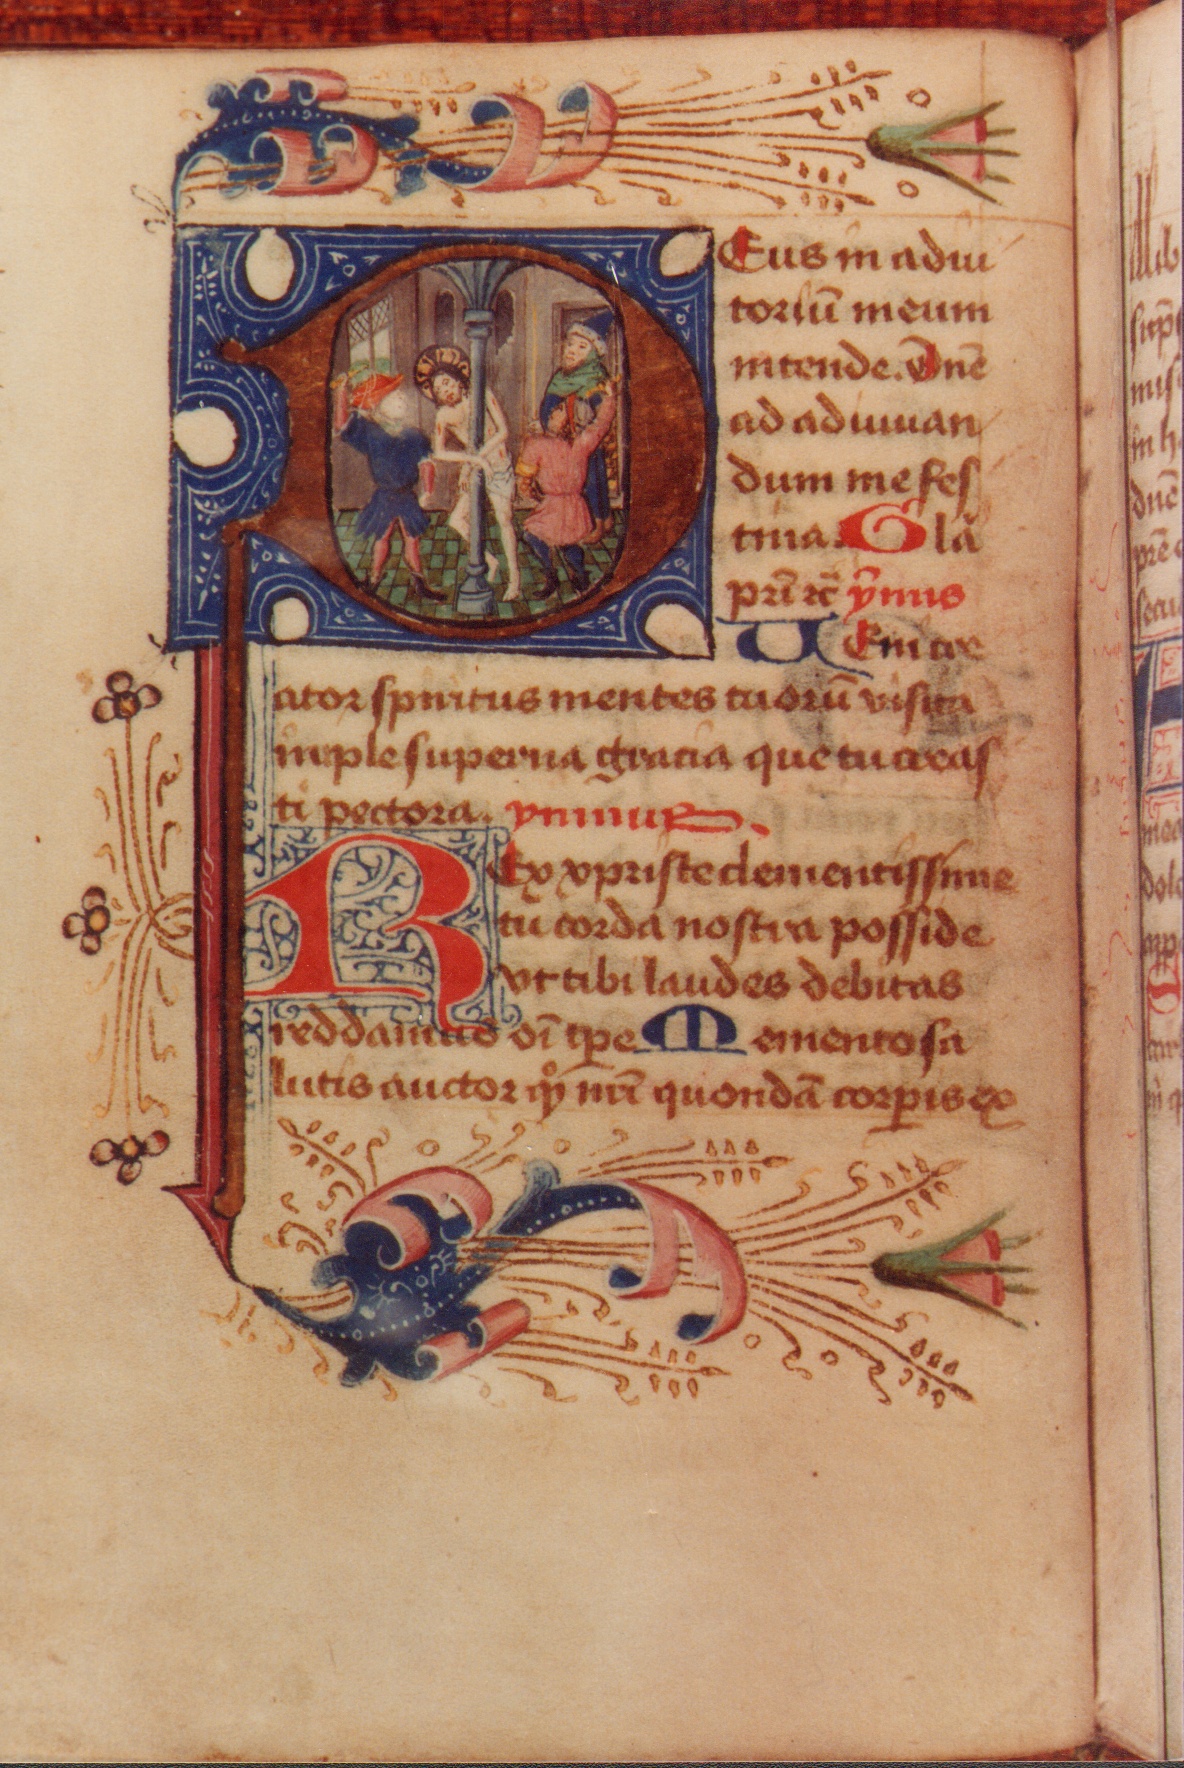 Deus in adiu
toriū meum
intende. Dn̄e
ad adiuuan
dum me fes
tina. Glā
pr̄i ⁊c̄ ẏmus
Ueni cre
ator spiritus mentes tuorū visita
imple superna gracia que tu creas
ti pectora. ymnus.
Rex xpriste clementissime
tu corda nostra posside
vt tibi laudes debitas
reddamus oī tp̄e Memento sa
lutis auctor qͦ nr̄i quondā corp̱is ex